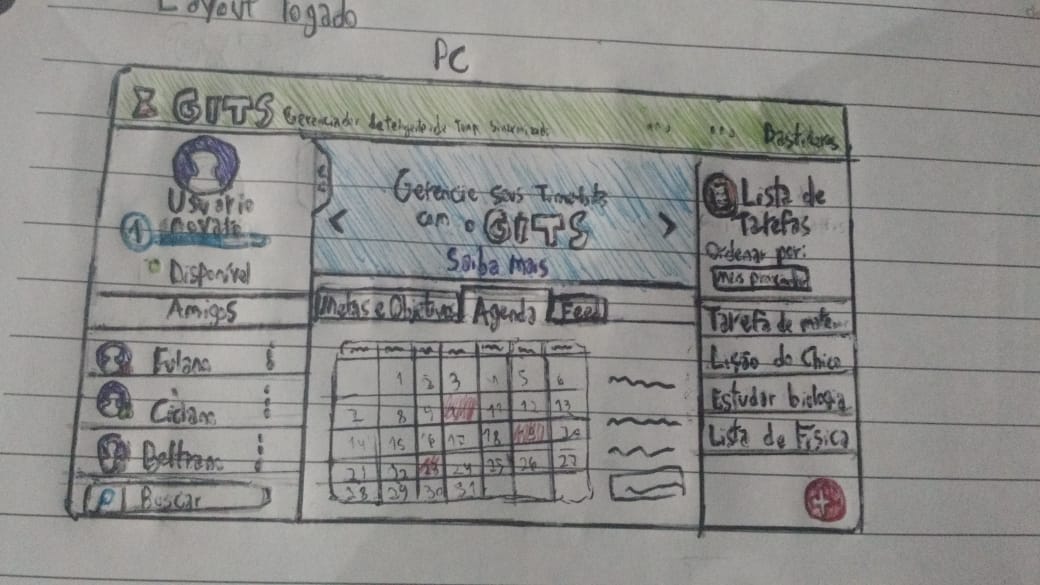 Layout logado
PC
GITS Gerenciador de
Bastidores
Usuário
novato
1
Disponível
Amigos
Fulano
Ciclano
Beltrano
Buscar
Gerencie seus
com o GITS
Saiba mais
Metas e Objetivos Agenda Feed
1 2 3 4 5 6
7 8 9 11 12 13
14 15 16 17 18 19 20
21 22 23 24 25 26 27
28 29 30 31
Lista de
Tarefas
Ordenar por:
Mais
Tarefa de
Lição do Chico
Estudar biologia
Lista de Física
+